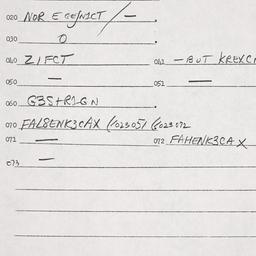 020 NOR E GE/NICT / —
030 0
040 ZIFCT 041 — BUT KREXC
050 — 051 —
060 G3S+R1GN
070 FAL8ENK3CAX (/02305) (/023072
071 — 072 FAHENK3CAX
073 —